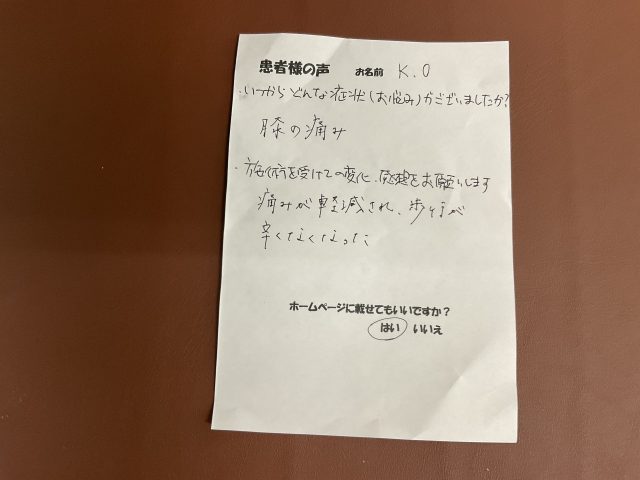 患者様の声 お名前 K.O
・いつからどんな症状(お悩み)がございましたか?
膝の痛み
・施術を受けての変化、感想をお願いします
痛みが軽減され、歩行が
辛くなくなった
ホームページに載せてもいいですか?
はい いいえ